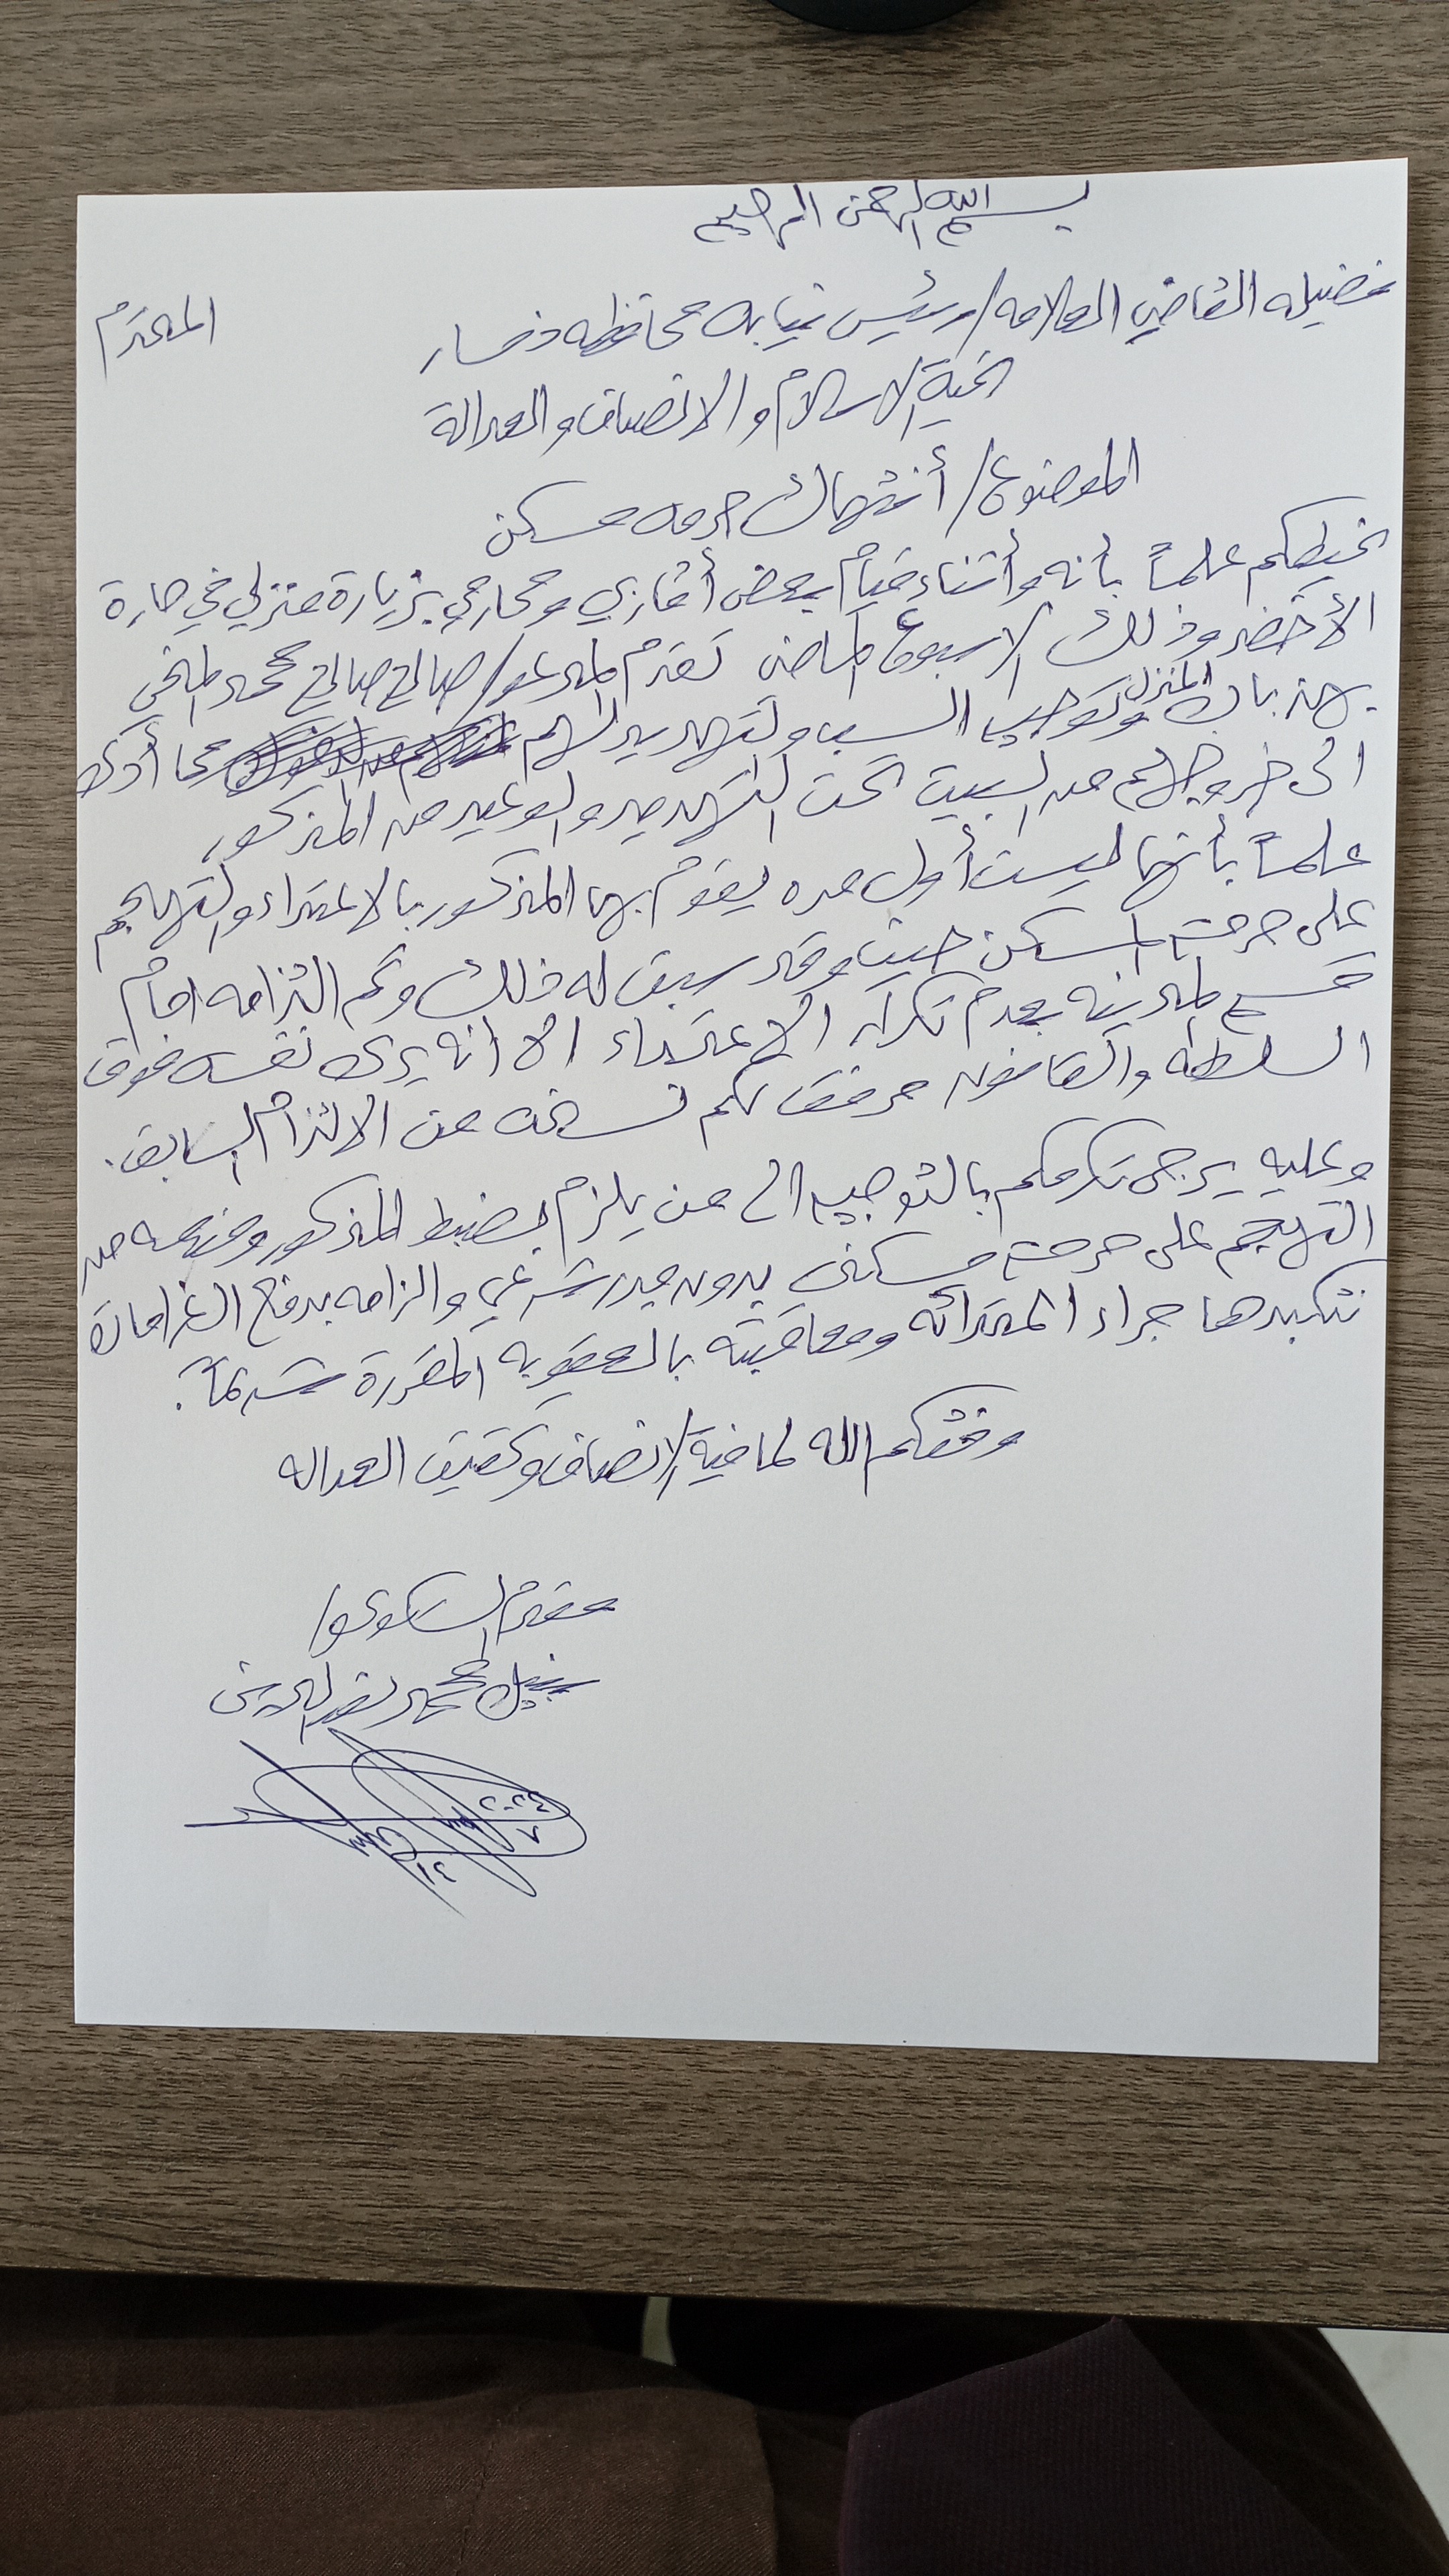 بسم الله الرحمن الرحيم
فضيله القاضي العلامه/ رئيس نيابه محافظه ذمار المحترم
تحية الاسلام والانصاف والعدالة
الموضوع/ أنتهاك حرمه مسكن
نحيطكم علماً بأنه وأثناء قيام بعض أقاربي ومحارمي بزيارة منزلي في حارة
الأخضر وذلك الاسبوع الماضي تقدم المدعو/ صالح صالح محمد
بهز باب المنزل وتوجيه السب والتهديد لهم مما أدى
الى خروجهم من البيت تحت التهديد والوعيد من المذكور
علماً بأنها ليست أول مره يقوم بها المذكور بالاعتداء والتهجم
على حرمة السكن حيث وقد سبق له ذلك وتم التزامه امام
قسم المدينه بعدم تكرار الاعتداء الا انه يرى نفسه فوق
السلطه والقانون مرفق لكم نسخه من الالتزام السابق.
وعليه يرجى تكرمكم بالتوجيه الى من يلزم بضبط المذكور ومنعه من
التهجم على حرمة مسكني بدون مبرر شرعي والزامه بدفع الغرامات
نتكبدها جراء اعتدائه ومعاقبته بالعقوبه المقررة شرعاً.
وفقكم الله لما فية الانصاف وتحقيق العداله
مقدم الشكوى/
نبيل محمد نصر الدين
٢٠٢٤
٨
١٤